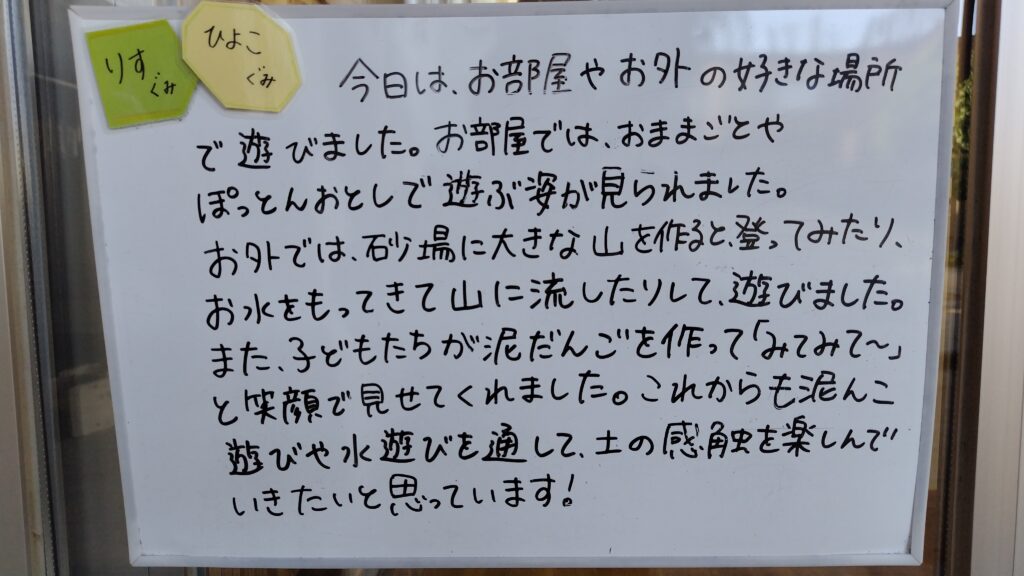 りす
ぐみ
ひよこ
ぐみ
今日は、お部屋やお外の好きな場所
で遊びました。お部屋では、おままごとや
ぽっとんおとしで遊ぶ姿が見られました。
お外では、砂場に大きな山を作ると、登ってみたり、
お水をもってきて山に流したりして、遊びました。
また、子どもたちが泥だんごを作って「みてみて～」
と笑顔で見せてくれました。これからも泥んこ
遊びや水遊びを通して、土の感触を楽しんで
いきたいと思っています!